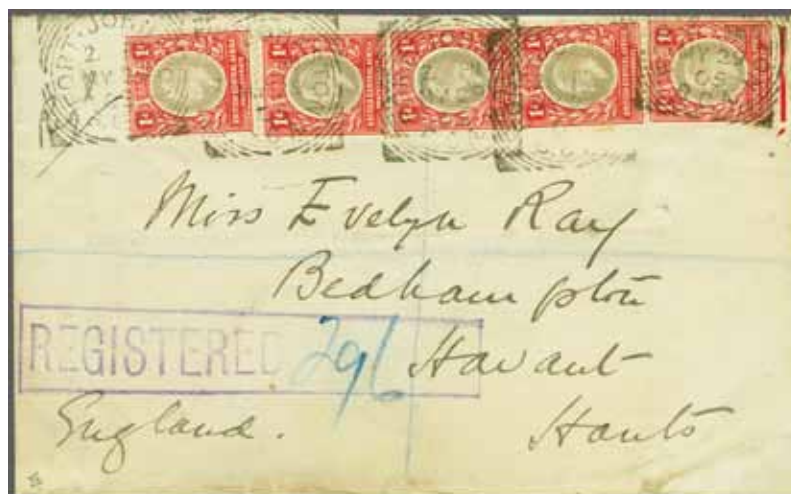 Miss Evelyn Ray
Bedhampton
REGISTERED 296 Havant
England. Hants